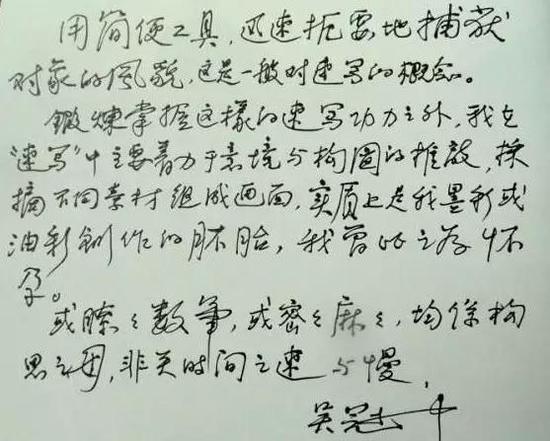 用简便工具，迅速扼要地捕获
对象的风貌，这是一般对速写的概念。
鍛煉掌握这樣的速写功力之外，我在
“速写”中主要着力于意境与构圖的推敲，採
摘不同素材组成画面，实质上是我墨彩或
油彩創作的胚胎，我曾比之为怀
孕。
或瞭々数筆，或密密麻麻，均係构
思之母，非关时间之速与慢，
吴冠中